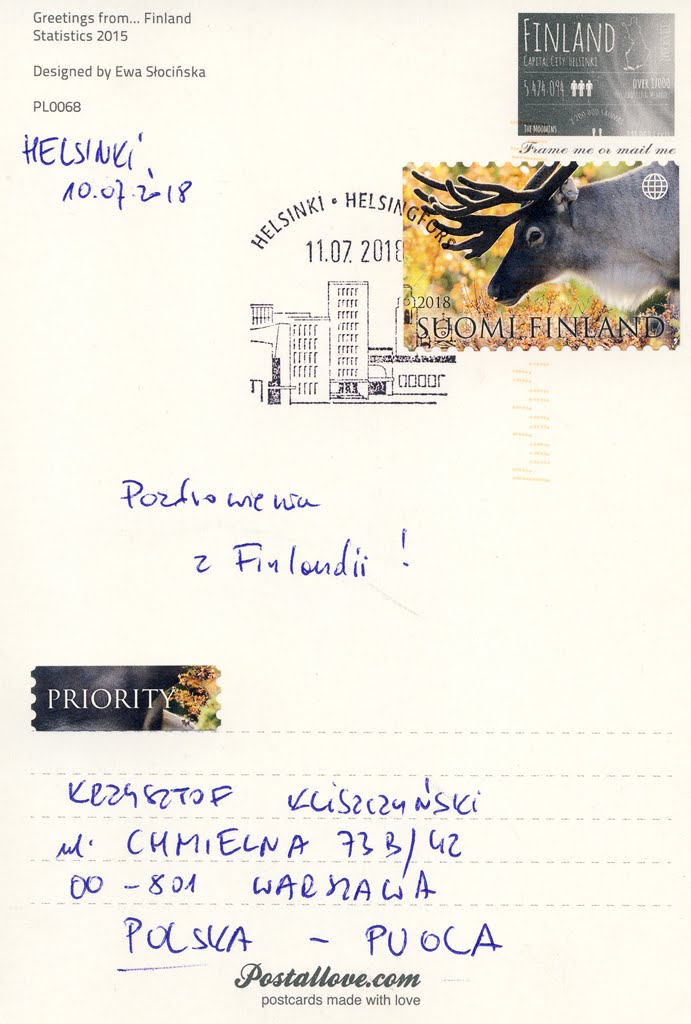 Greetings from... Finland
Statistics 2015
Designed by Ewa Słocińska
PL0068
FINLAND
CAPITAL CITY HELSINKI
5 474 094
OVER 17000
THE MOOMINS
Frame me or mail me
HELSINKI,
10.07.2018
HELSINKI • HELSINGFORS
11.07.2018
2018
SUOMI FINLAND
Pozdrowienia
z Finlandii !
PRIORITY
KRZYSZTOF KLISZCZYŃSKI
ul. CHMIELNA 73B/42
00-801 WARSZAWA
POLSKA - PUOLA
Postallove.com
postcards made with love